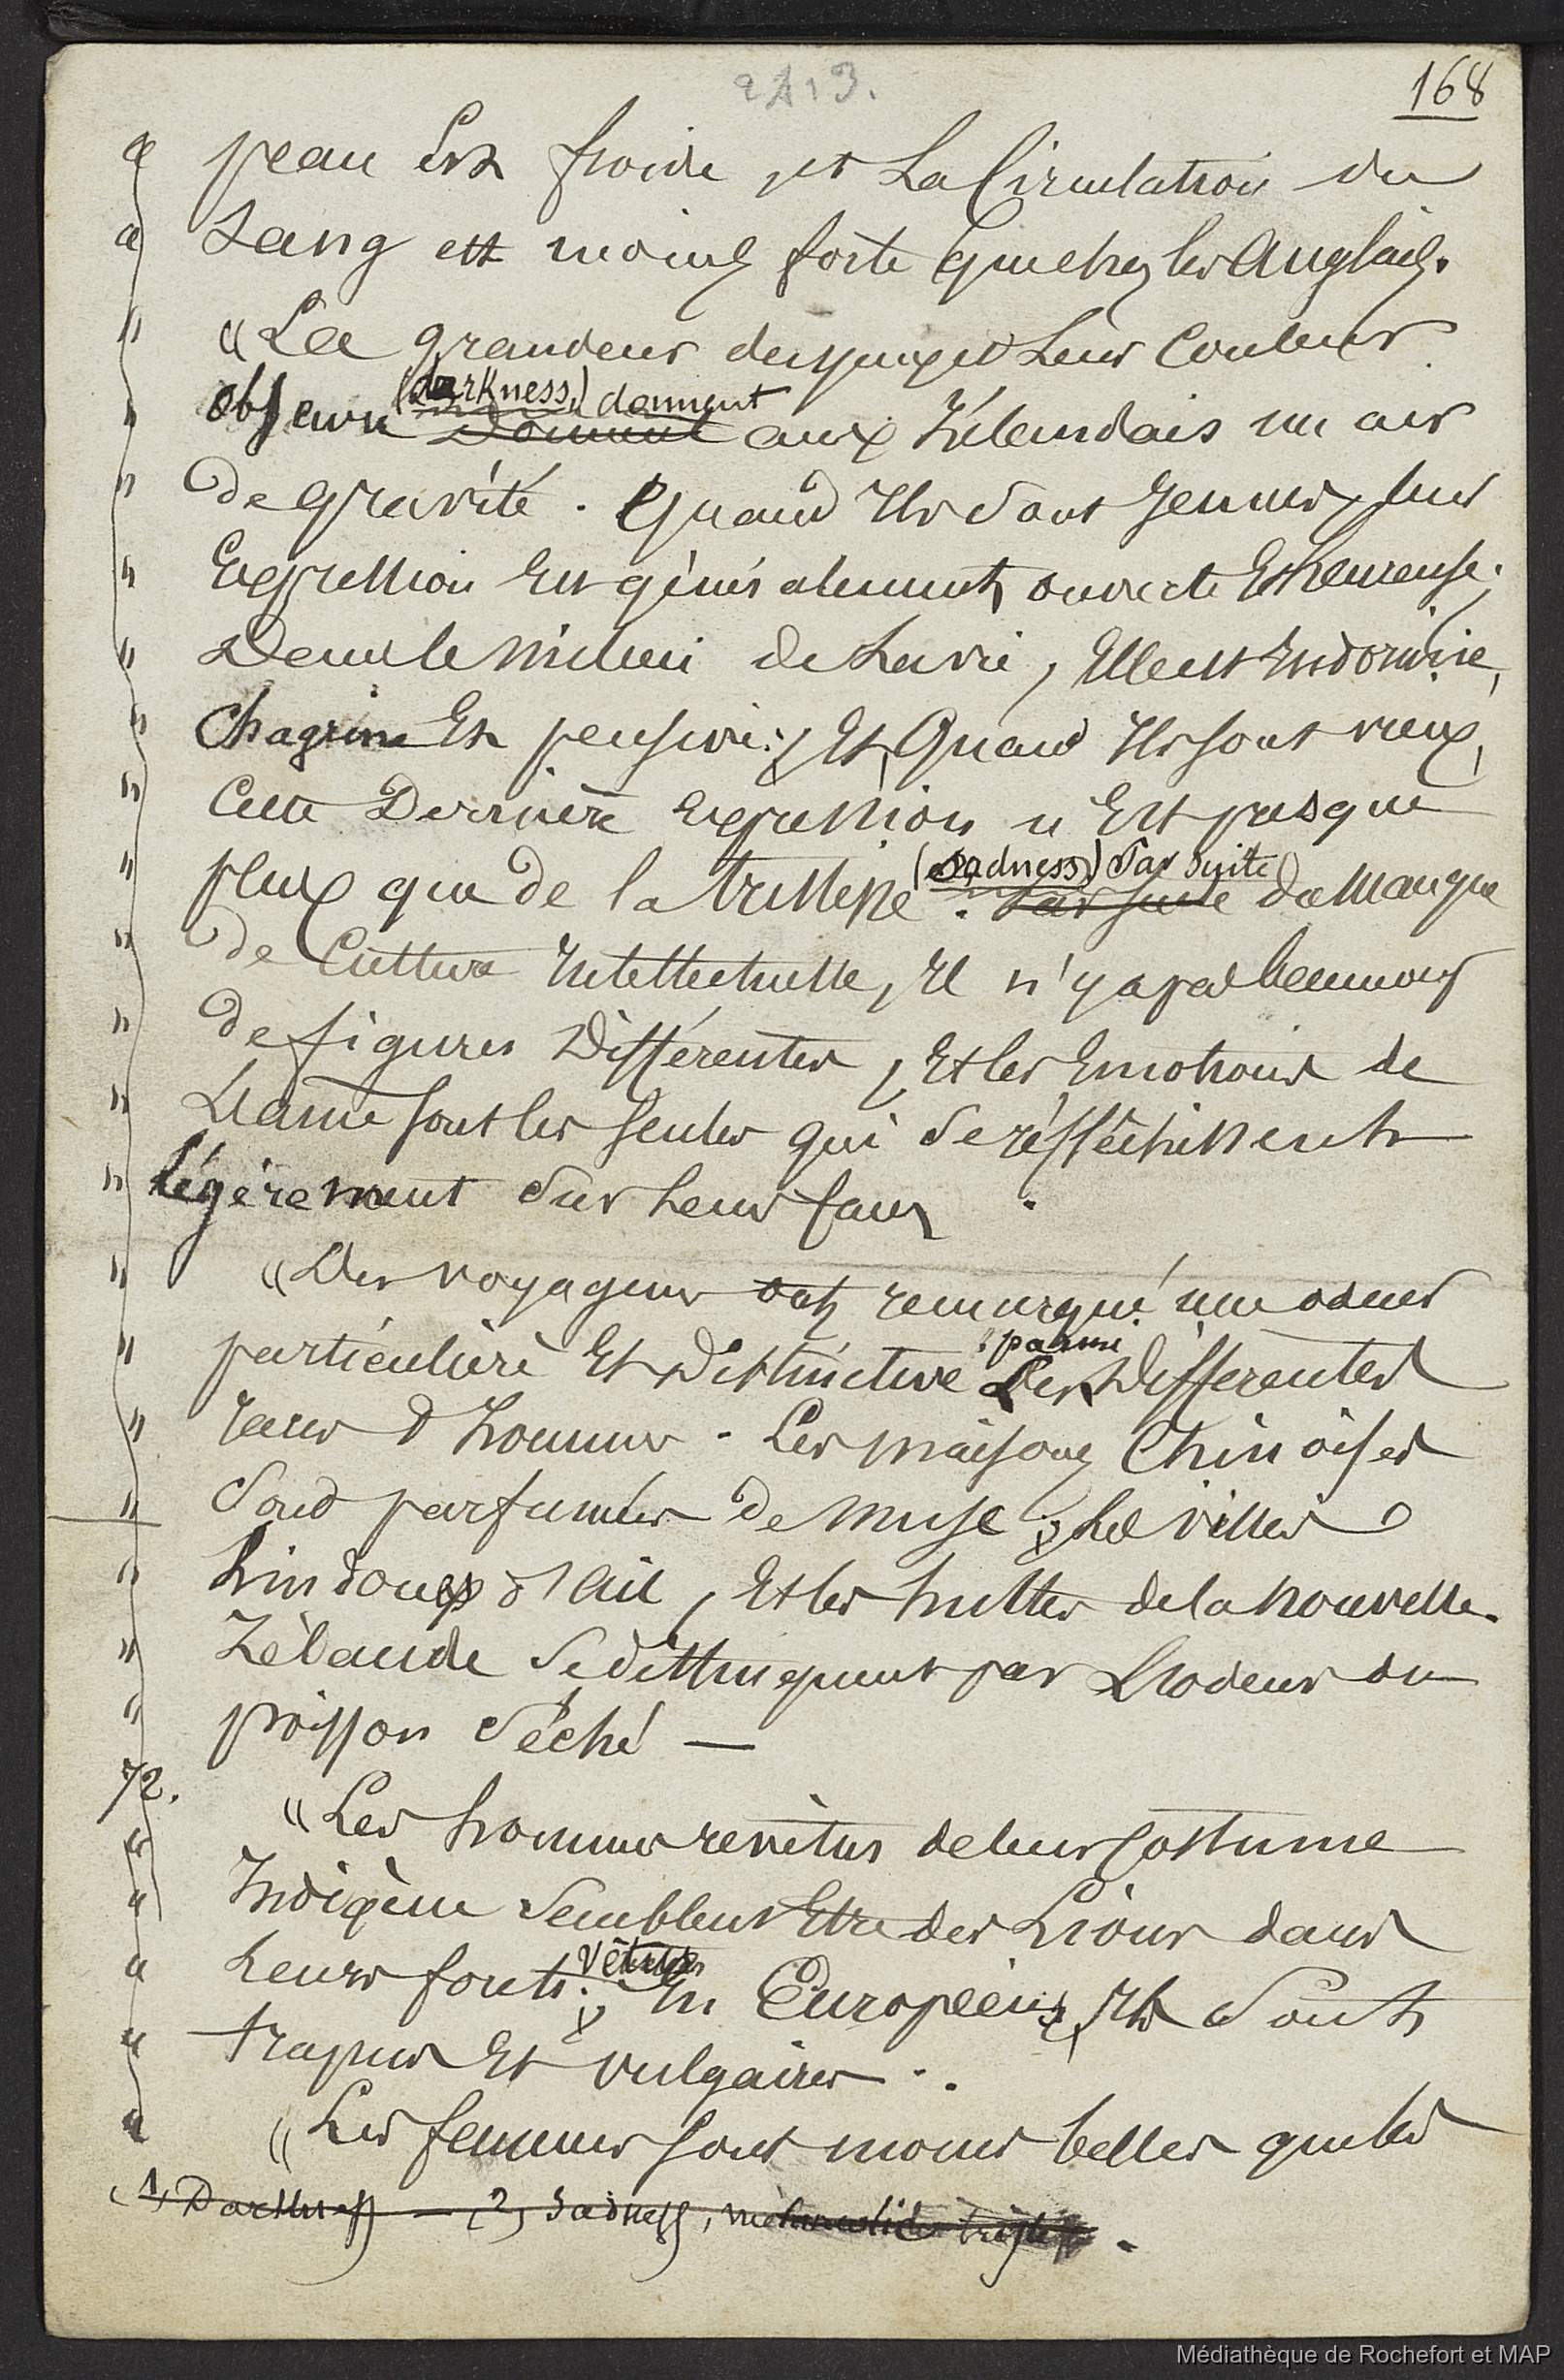 2213.
168
" peau Est froide, et La Circulation du
" Sang est moins forte que chez les Anglais.
" "La grandeur des yeux et Leur Couleur
" Obscure (darkness,) donnent aux Zélandais un air
" de gravité. Quand Ils Sont Jeunes, leur
" Expression Est généralement ouverte Et heureuse;
" Dans le milieu de La vie, Elle est Endormie,
" Chagrine Et pensive; Et, Quand Ils sont vieux,
" Cette Dernière expression n'Est presque
" plus que de la tristesse (sadness) Par suite du Manque
" de Culture Intellectuelle, Il n'y a pas beaucoup
" de figures Différentes, Et les Emotions de
" L'ame sont les seules qui Se réfléchissent
" légèrement Sur Leur face.
" "Des voyageurs ont remarqué une odeur
" particulière Et Distinctive parmi Les Différentes
" races d'hommes. Les maisons Chinoises
" Sont parfumées De Musc; Les villes
" hindoues d'ail, Et les huttes de la nouvelle-
" Zélande Se distinguent par L'odeur du
" poisson Séché —
72.
" "Les hommes revêtus de leur Costume
" Indigène Semblent Etre des Lions dans
" Leurs forêts; Vêtus En Européens, Ils Sont
" trapus Et vulgaires.
" "Les femmes sont moins belles que les
(1) Darkness — (2) Sadness, mélancolie tristesse.
Médiathèque de Rochefort et MAP